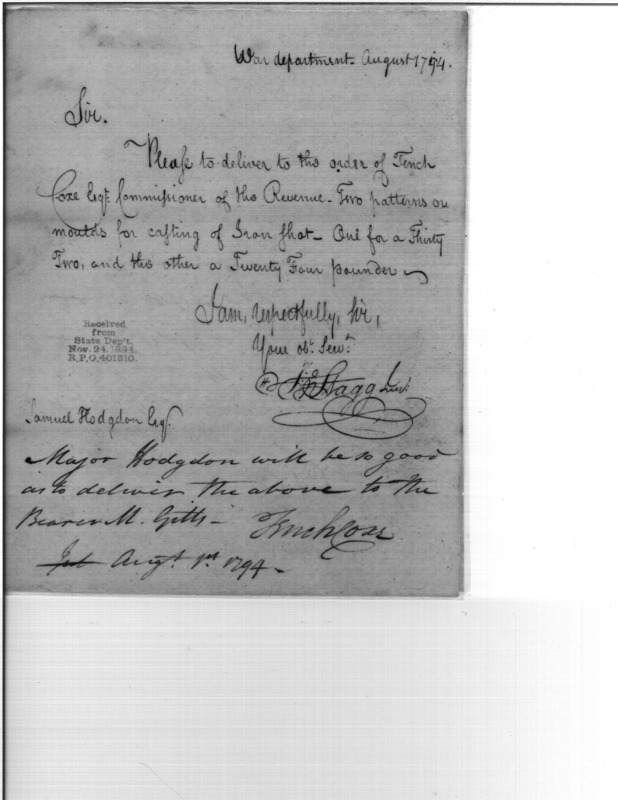 War department. August 1794.
Sir.
Please to deliver to the order of Tench
Coxe Esqr. Commissioner of the Revenue. Two patterns or
moulds for casting of Iron shot - One for a Thirty
Two, and the other a Twenty Four pounder
I am, respectfully, Sir,
Your obt. Servt.
Stagg Junr.
Received
from
State Dep't.
Nov. 24. 1894.
R.P.O. 401310.
Samuel Hodgdon Esqr.
Major Hodgdon will be so good
as to deliver the above to the
Bearer M. Getts -
Tench Coxe
Augt. 1st 1794 -